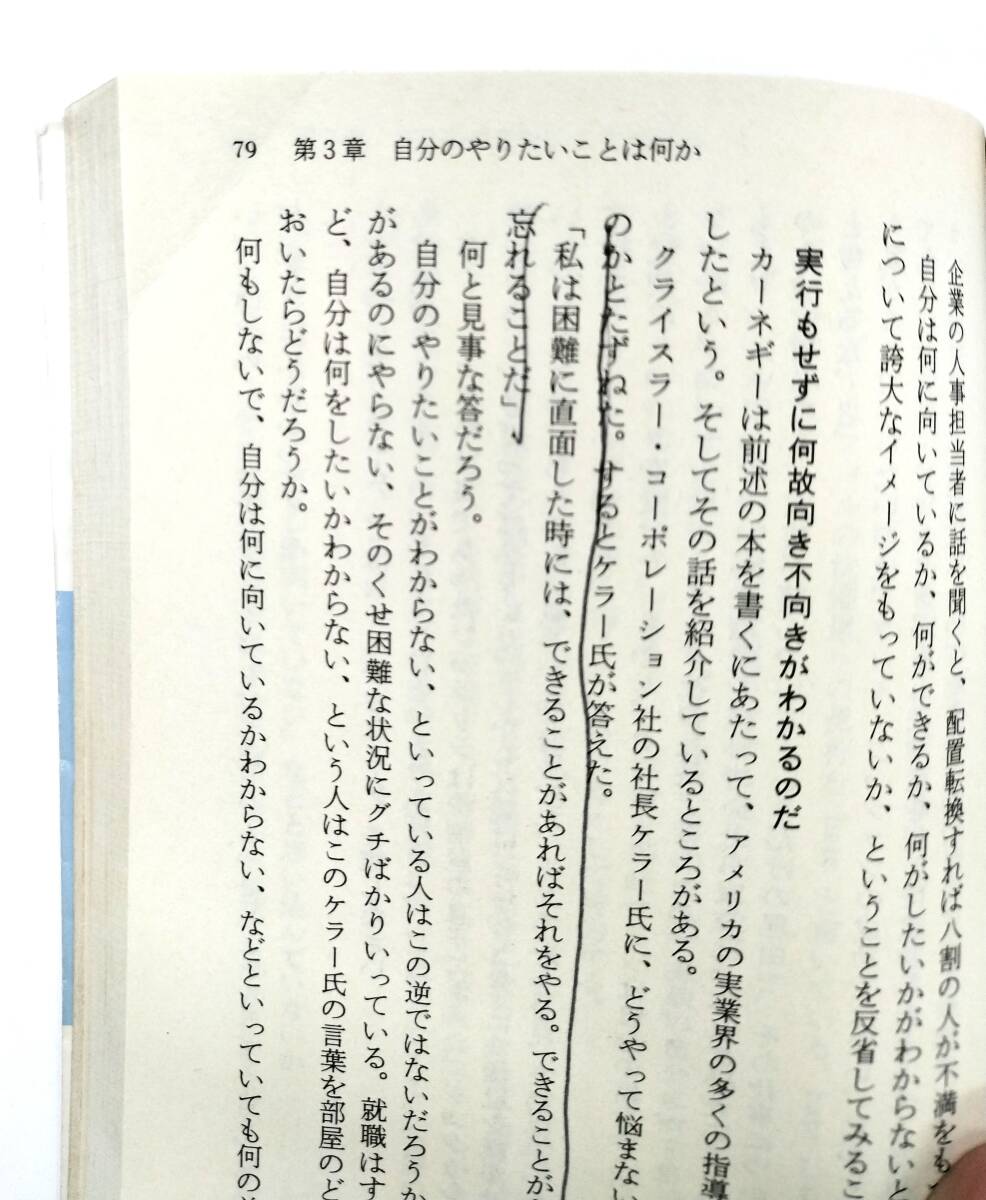 79　第3章　自分のやりたいことは何か
企業の人事担当者に話を聞くと、配置転換すれば八割の人が不満をも
自分は何に向いているか、何ができるか、何がしたいかがわからないと
について誇大なイメージをもっていないか、ということを反省してみるこ
実行もせずに何故向き不向きがわかるのだ
カーネギーは前述の本を書くにあたって、アメリカの実業界の多くの指導
したという。そしてその話を紹介しているところがある。
クライスラー・コーポレーション社の社長ケラー氏に、どうやって悩まない
のかとたずねた。するとケラー氏が答えた。
「私は困難に直面した時には、できることがあればそれをやる。できることが
忘れることだ」
何と見事な答だろう。
自分のやりたいことがわからない、といっている人はこの逆ではないだろうか
があるのにやらない、そのくせ困難な状況にグチばかりいっている。就職はす
ど、自分は何をしたいかわからない、という人はこのケラー氏の言葉を部屋のど
おいたらどうだろうか。
何もしないで、自分は何に向いているかわからない、などといっていても何の